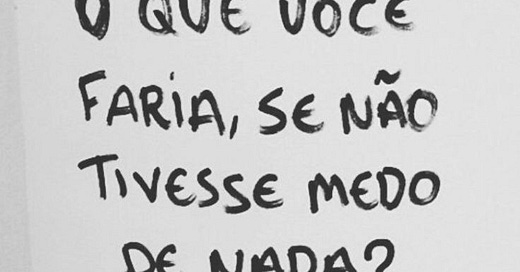 O QUE VOCÊ
FARIA, SE NÃO
TIVESSE MEDO
DE NADA?